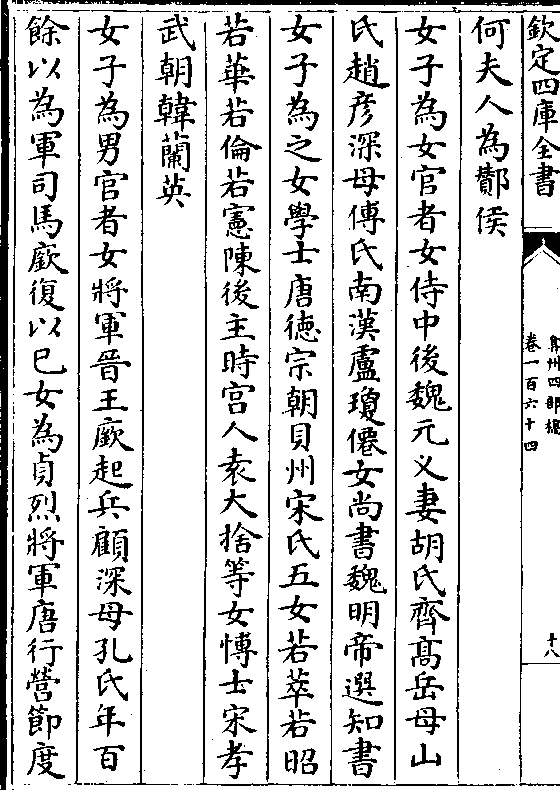 欽定四庫全書
弇州四部稿
卷一百六十四
十八
何夫人為酇侯
女子為女官者女侍中後魏元义妻胡氏齊髙岳母山
氏趙彦深母傅氏南漢盧瓊僊女尚書魏明帝選知書
女子為之女學士唐徳宗朝貝州宋氏五女若莘若昭
若華若倫若憲陳後主時宫人袁大捨等女愽士宋孝
武朝韓蘭英
女子為男官者女將軍晉王廞起兵顧深母孔氏年百
餘以為軍司馬廞復以已女為貞烈將軍唐行營節度